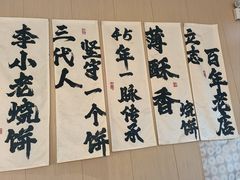 李小老烧饼
三代人
坚守一个饼
45年一脉传承
薄酥香
立志
烧饼
百年老店